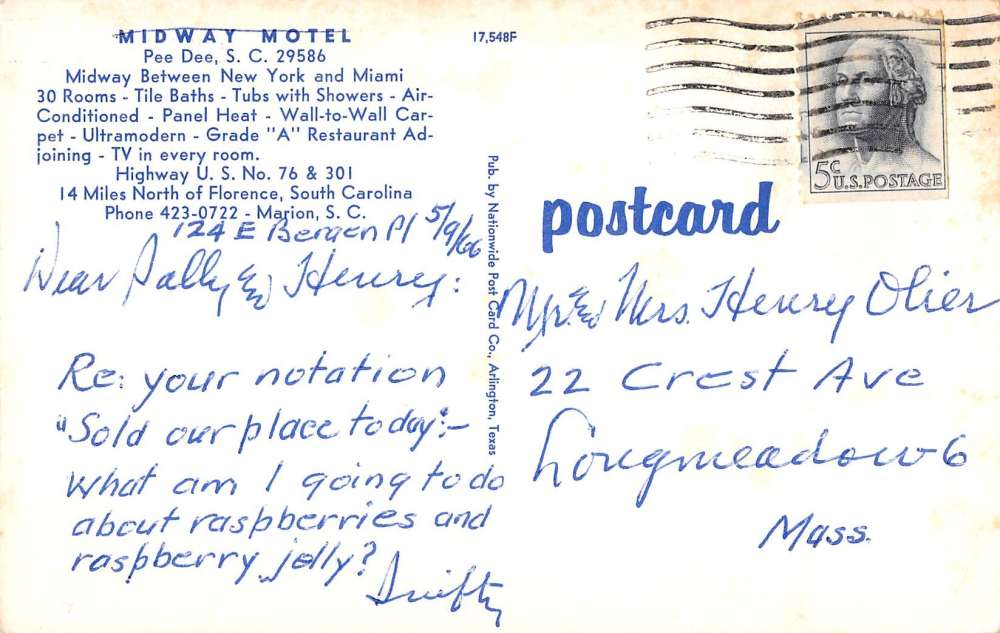 MIDWAY MOTEL
Pee Dee, S. C. 29586
Midway Between New York and Miami
30 Rooms - Tile Baths - Tubs with Showers - Air-
Conditioned - Panel Heat - Wall-to-Wall Car-
pet - Ultramodern - Grade "A" Restaurant Ad-
joining - TV in every room.
Highway U. S. No. 76 & 301
14 Miles North of Florence, South Carolina
Phone 423-0722 - Marion, S. C.
124 E Bergen Pl 5/9/66
Dear Sally & Henry:
Re: your notation
"Sold our place today":-
what am I going to do
about raspberries and
raspberry jelly?
Swifty
17,548F
Pub. by Nationwide Post Card Co., Arlington, Texas
5c U.S. POSTAGE
postcard
Mr. & Mrs. Henry Olier
22 Crest Ave
Longmeadow 6
Mass.